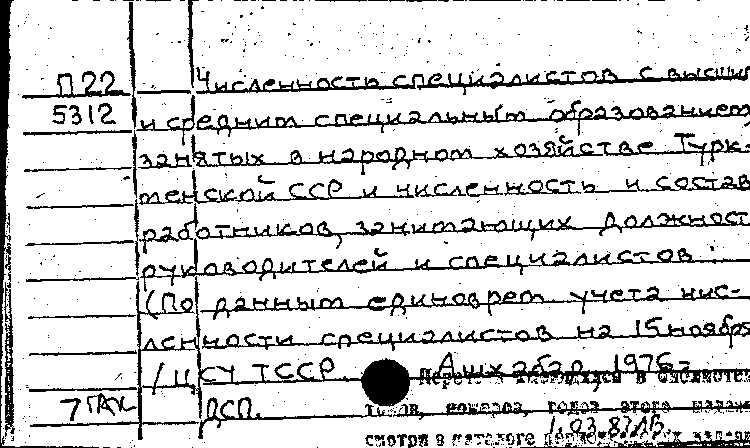 П22 Численность специалистов с высши
5312 и средним специальным образованием
занятых в народном хозяйстве Турк-
менской ССР и численность и состав
работников, занимающих должност
руководителей и специалистов:
(По данным единоврем учета чис-
ленности специалистов на 15 ноября
/ЦСУ ТССР. Ашхабад, 1976г
7ГАК ДСП. номеров, годов этого
1.03.87ЛВ
смотри в каталоге